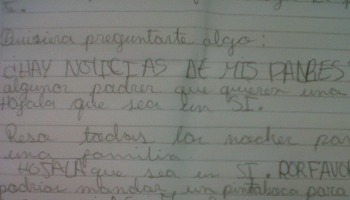 Quisiera preguntarte algo:
¿HAY NOTICIAS DE MIS PADRES
algunos padres que quieran una
Hojala que sea un SI.
Resa todas las noches par
una familia
HOJALA que sea un SI. PORFAVO
podrias mandar un pintaboca para